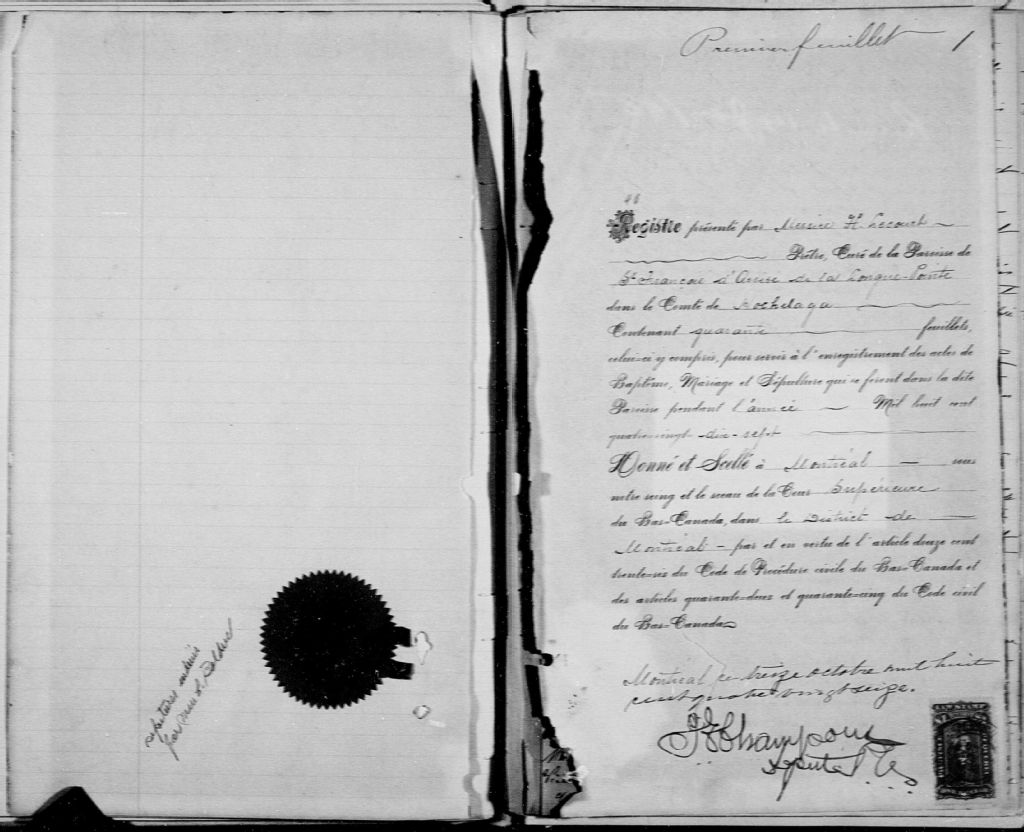 Premier feuillet 1
48
Registre présenté par Messire H. Lecourt
Prêtre, Curé de la Paroisse de
St François d'Assise de la Longue-Pointe
dans le Comté de Hochelaga
Contenant quarante feuillets,
celui-ci y compris, pour servir à l'enregistrement des actes de
Baptême, Mariage et Sépulture qui se feront dans la dite
Paroisse pendant l'année Mil huit cent
quatre-vingt-dix-sept
Donné et Scellé à Montréal sous
notre seing et le sceau de la Cour Supérieure
du Bas-Canada, dans le District de
Montréal par et en vertu de l'article douze cent
trente-six du Code de Procédure civile du Bas-Canada et
des articles quarante-deux et quarante-cinq du Code civil
du Bas-Canada
Montréal ce treize octobre mil huit
cent quatre vingt seize.
Champoux
Député
LAW STAMP